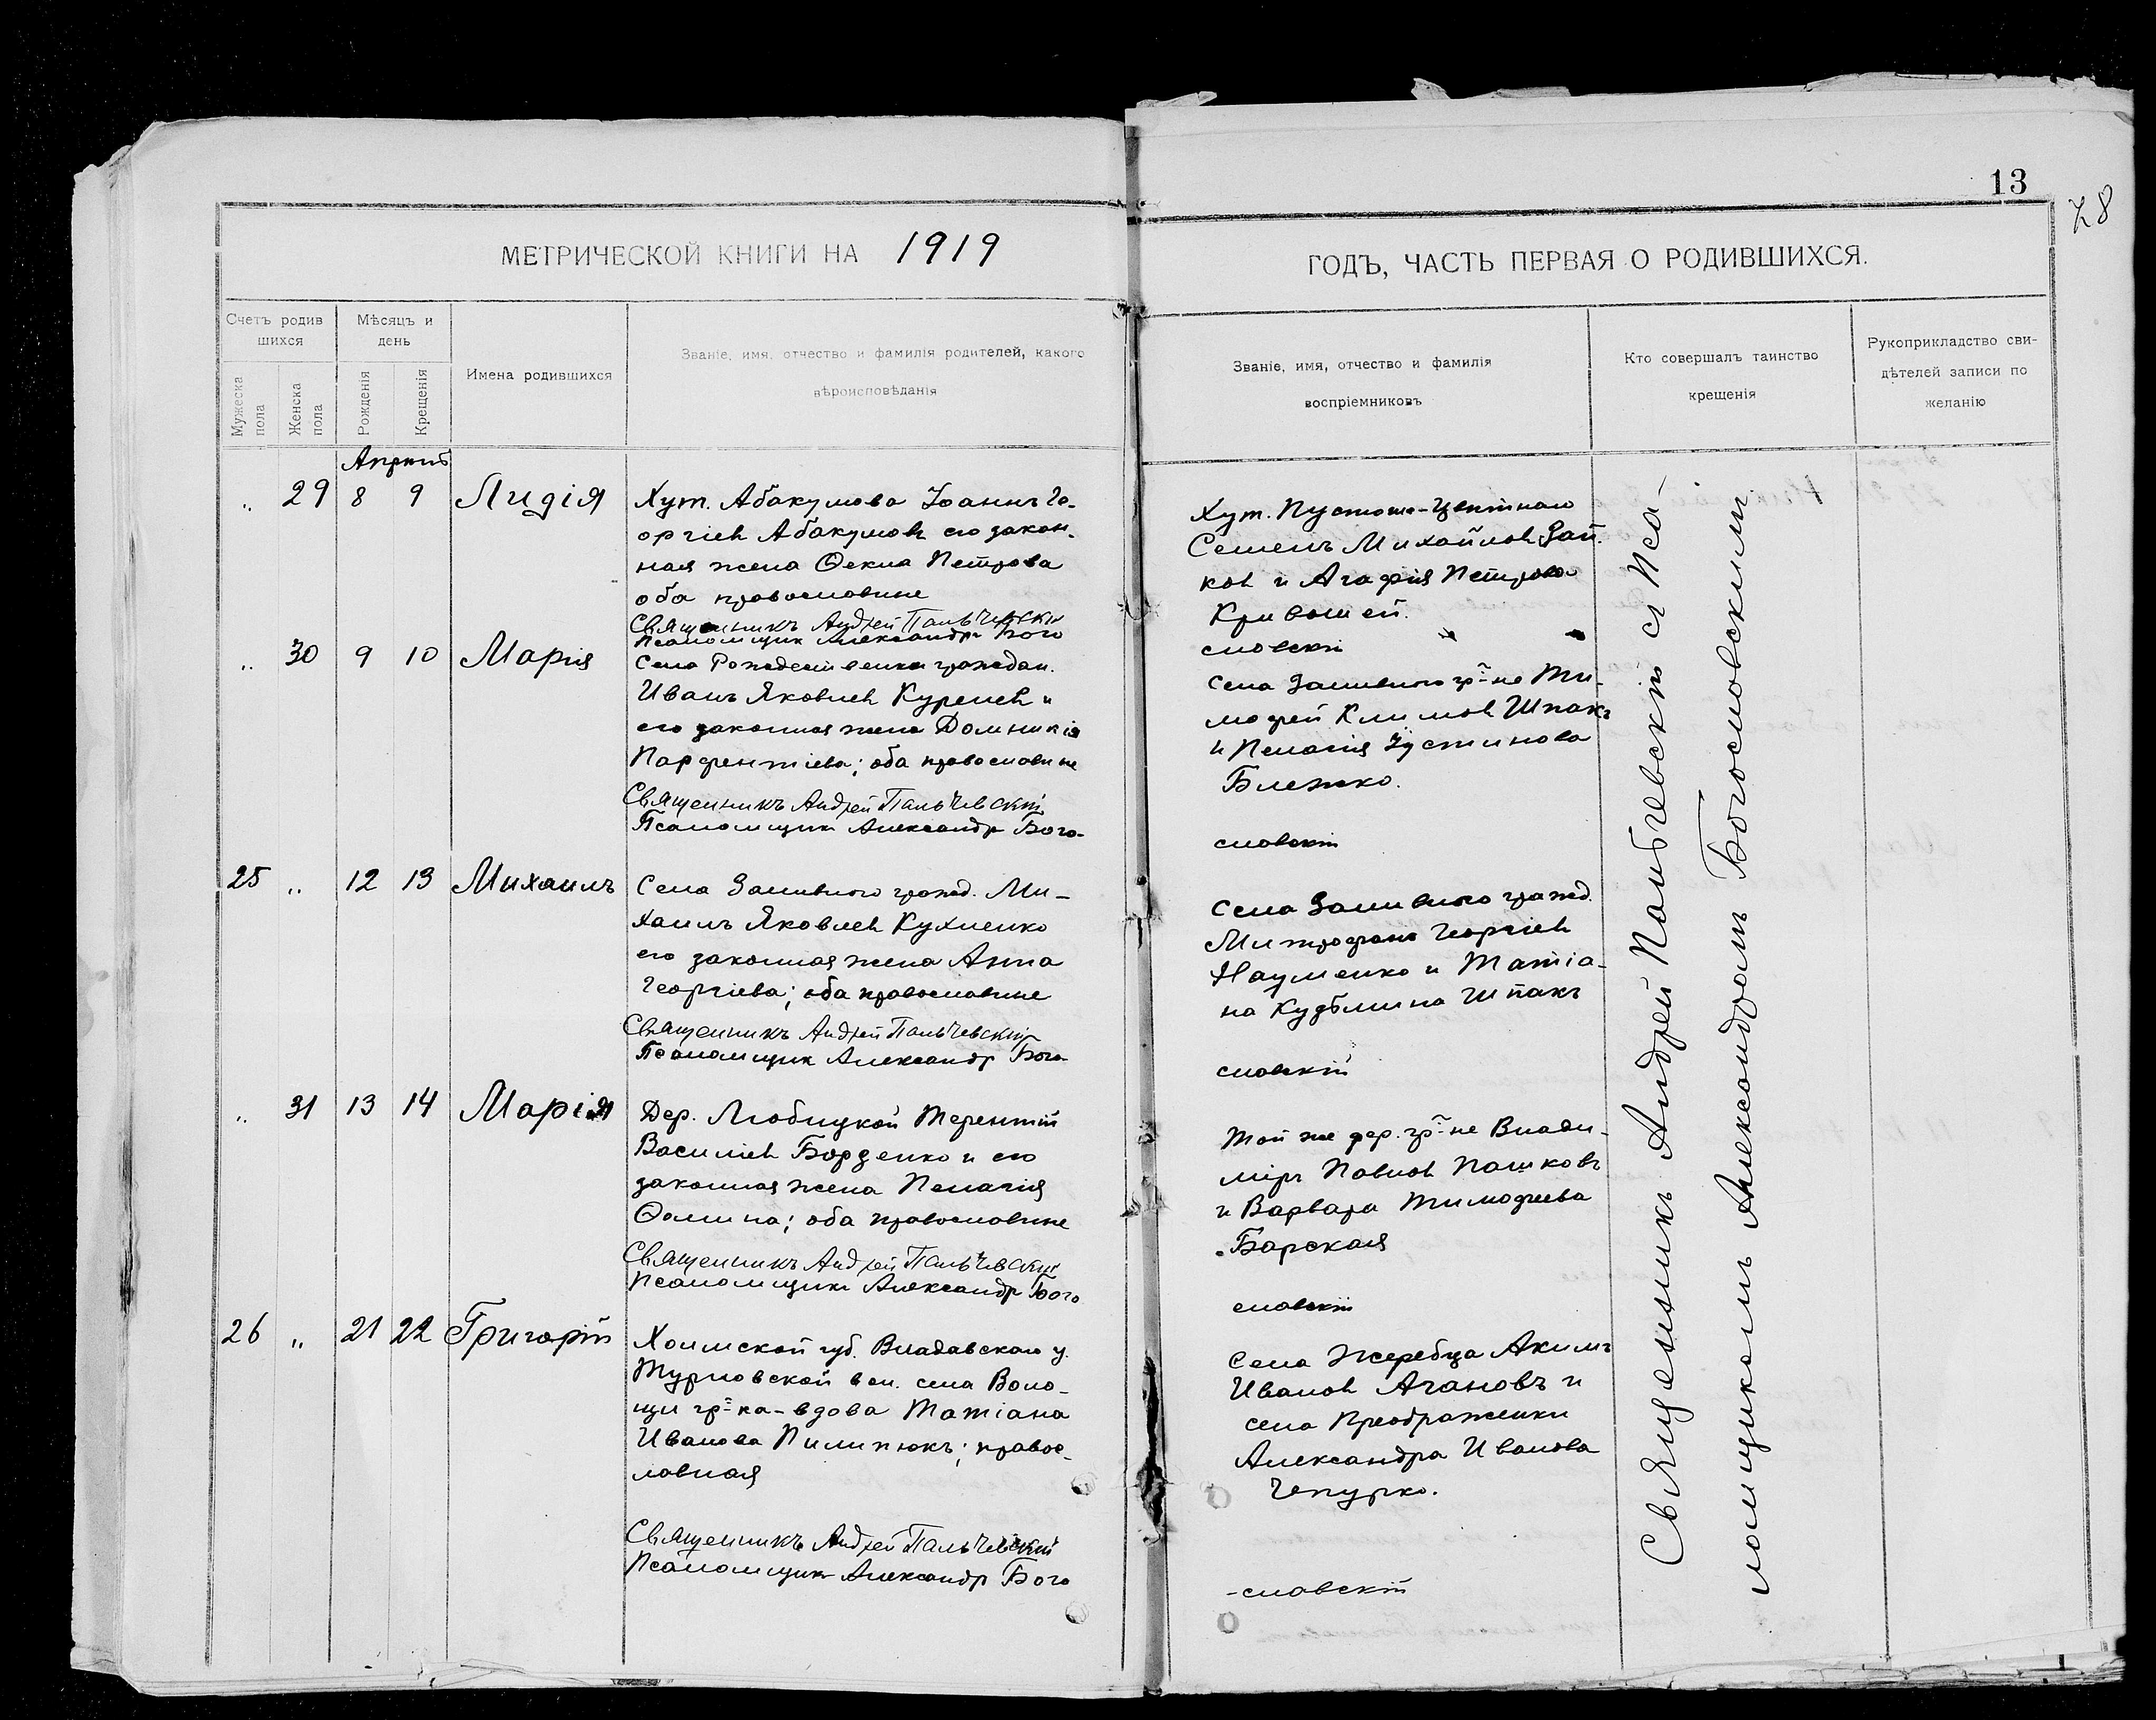 13
78
МЕТРИЧЕСКОЙ КНИГИ НА 1919
ГОДЪ, ЧАСТЬ ПЕРВАЯ О РОДИВШИХСЯ.
Счетъ родив
шихся
Мужеска
пола
Женска
пола
Мѣсяцъ и
день
Рожденія
Крещенія
Имена родившихся
Званіе, имя, отчество и фамилія родителей, какого
вѣроисповѣданія
Званіе, имя, отчество и фамилія
воспріемниковъ
Кто совершалъ таинство
крещенія
Рукоприкладство сви-
дѣтелей записи по
желанію
Апрѣль
„ 29 8 9 Лидія
Хут. Абакумова Іоаннъ Ге-
оргіевъ Абакумовъ его закон-
ная жена Ѳекла Петрова
оба православные
Священникъ Андрей Пальчевскій
Псаломщикъ Александръ Бого
Хут.
Семенъ Михайловъ Зай-
ковъ и Агафія Петрова
Кривошей.
словскій
„ 30 9 10 Марія
Села Рождественки граждан.
Иванъ Яковлевъ и
его законная жена Домникія
Парфентіева; оба православные
Священникъ Андрей Пальчевскій
Псаломщикъ Александръ Бого-
Села Заливного гр-не Ти-
мофей Климовъ Шпакъ
и Пелагія Іустинова
Блежко.
словскій
25 „ 12 13 Михаилъ
Села Заливного гражд. Ми-
хаилъ Яковлевъ Кухленко
его законная жена Анна
Георгіева; оба православные
Священникъ Андрей Пальчевскій
Псаломщикъ Александръ Бого-
Села Заливного гражд.
Митрофанъ Георгіевъ
Науменко и Татіа-
на Кузьмина Шпакъ
словскій
„ 31 13 14 Марія
Дер. Любицкой Терентій
Василіевъ Борзенко и его
законная жена Пелагія
Ѳомина; оба православные
Священникъ Андрей Пальчевскій
Псаломщикъ Александръ Бого
Той же дер. гр-не Влади-
міръ Павловъ Пашковъ
и Варвара Тимофеева
Барская
словскій
26 „ 21 22 Григорій
Холмской губ. Владавскаго у.
Турновской вол. села Воло-
щи гр-ка-вдова Татіана
Иванова Пилипюкъ; правос-
лавная
Священникъ Андрей Пальчевскій
Псаломщикъ Александръ Бого
Села Жеребца Акимъ
Ивановъ Агановъ и
села Преображенки
Александра Иванова
Чепурко.
-словскій
Священникъ Андрей Пальчевскій съ Пса-
ломщикомъ Александромъ Богословскимъ